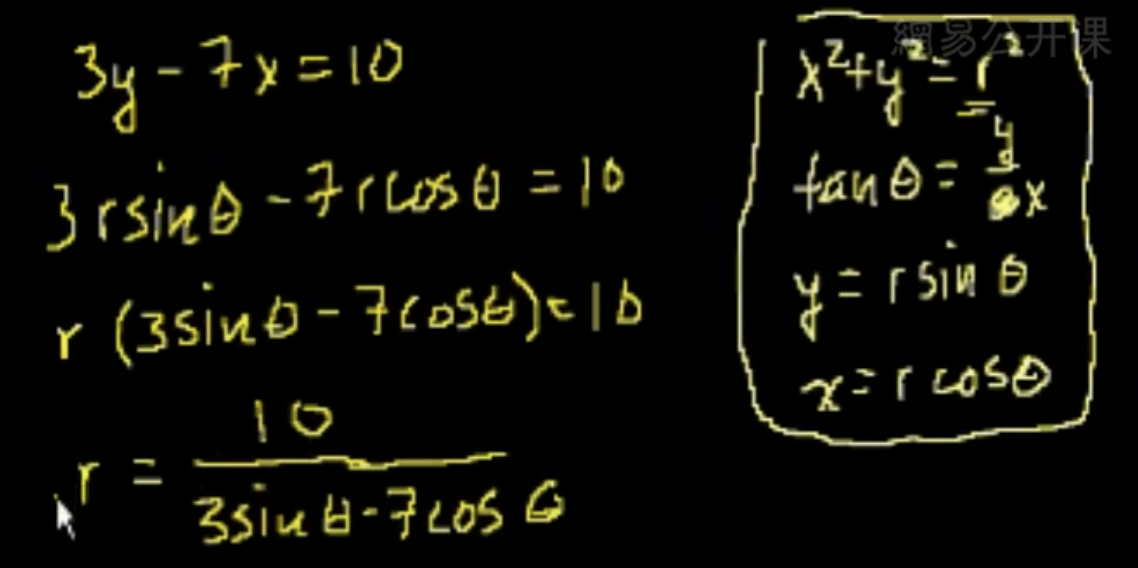 3y - 7x = 10
3rsinθ - 7rcosθ = 10
r (3sinθ - 7cosθ) = 10
r = 10 / (3sinθ - 7cosθ)
網易公开课
x² + y² = r²
tanθ = y/x
y = rsinθ
x = rcosθ